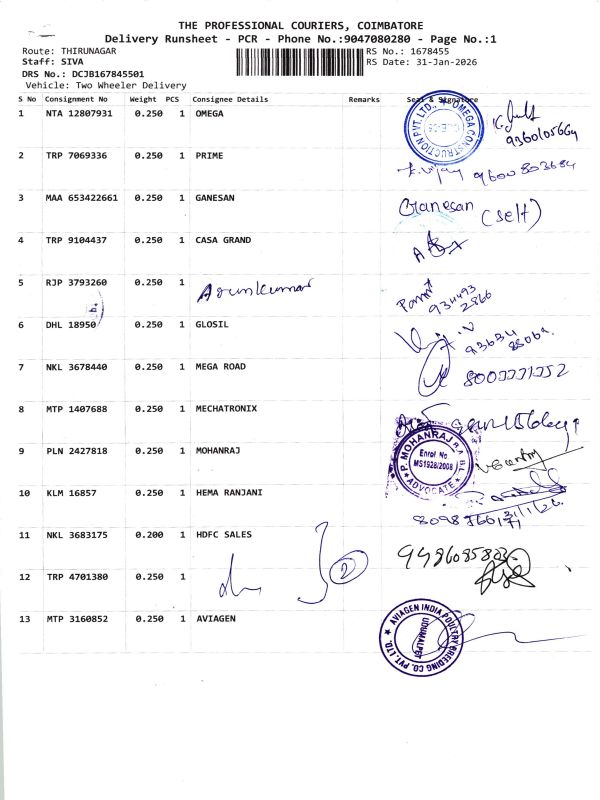 THE PROFESSIONAL COURIERS, COIMBATORE
Delivery Runsheet - PCR - Phone No.:9047080280 - Page No.:1
Route: THIRUNAGAR RS No.: 1678455
Staff: SIVA RS Date: 31-Jan-2026
DRS No.: DCJB167845501
Vehicle: Two Wheeler Delivery
S No Consignment No Weight PCS Consignee Details Remarks Seal & Signature
1 NTA 12807931 0.250 1 OMEGA
OMEGA CONSTRUCTION PVT. LTD.,
9360105664
2 TRP 7069336 0.250 1 PRIME
9600803684
3 MAA 653422661 0.250 1 GANESAN Ganesan (self)
4 TRP 9104437 0.250 1 CASA GRAND
5 RJP 3793260 0.250 1 Arunkumar
934493
2866
6 DHL 18950 0.250 1 GLOSIL
7 NKL 3678440 0.250 1 MEGA ROAD
8 MTP 1407688 0.250 1 MECHATRONIX
9 PLN 2427818 0.250 1 MOHANRAJ
P. MOHANRAJ B.A. B.L.
Enrol No
MS1928/2008
ADVOCATE
10 KLM 16857 0.250 1 HEMA RANJANI
31/1/26
11 NKL 3683175 0.200 1 HDFC SALES
12 TRP 4701380 0.250 1 2
13 MTP 3160852 0.250 1 AVIAGEN
AVIAGEN INDIA POULTRY BREEDING CO. PVT. LTD.
UDUMALPET